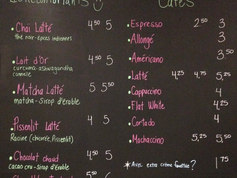 Cafés
• Chai Latté 4.50 5
thé noir-épices indiennes
• Lait d'Or 4.50 5
curcuma-ashwagandha
cannelle
• Matcha Latté 5 5.50
matcha-sirop d'érable
• Pissenlit Latté 4.50 5
Racine (chicorée, Pissenlit)
• Chocolat chaud 4.50 5
cacao cru-sirop d'érable
• Espresso 2.50 3
• Allongé 3
• Américano 3.50
• Latté 4.25 4.75 5.25
• Cappuccino 4
• Flat White 4.25
• Cortado 4
• Mochaccino 5.25 5.50
* Avec extra crème fouettée? 1.75